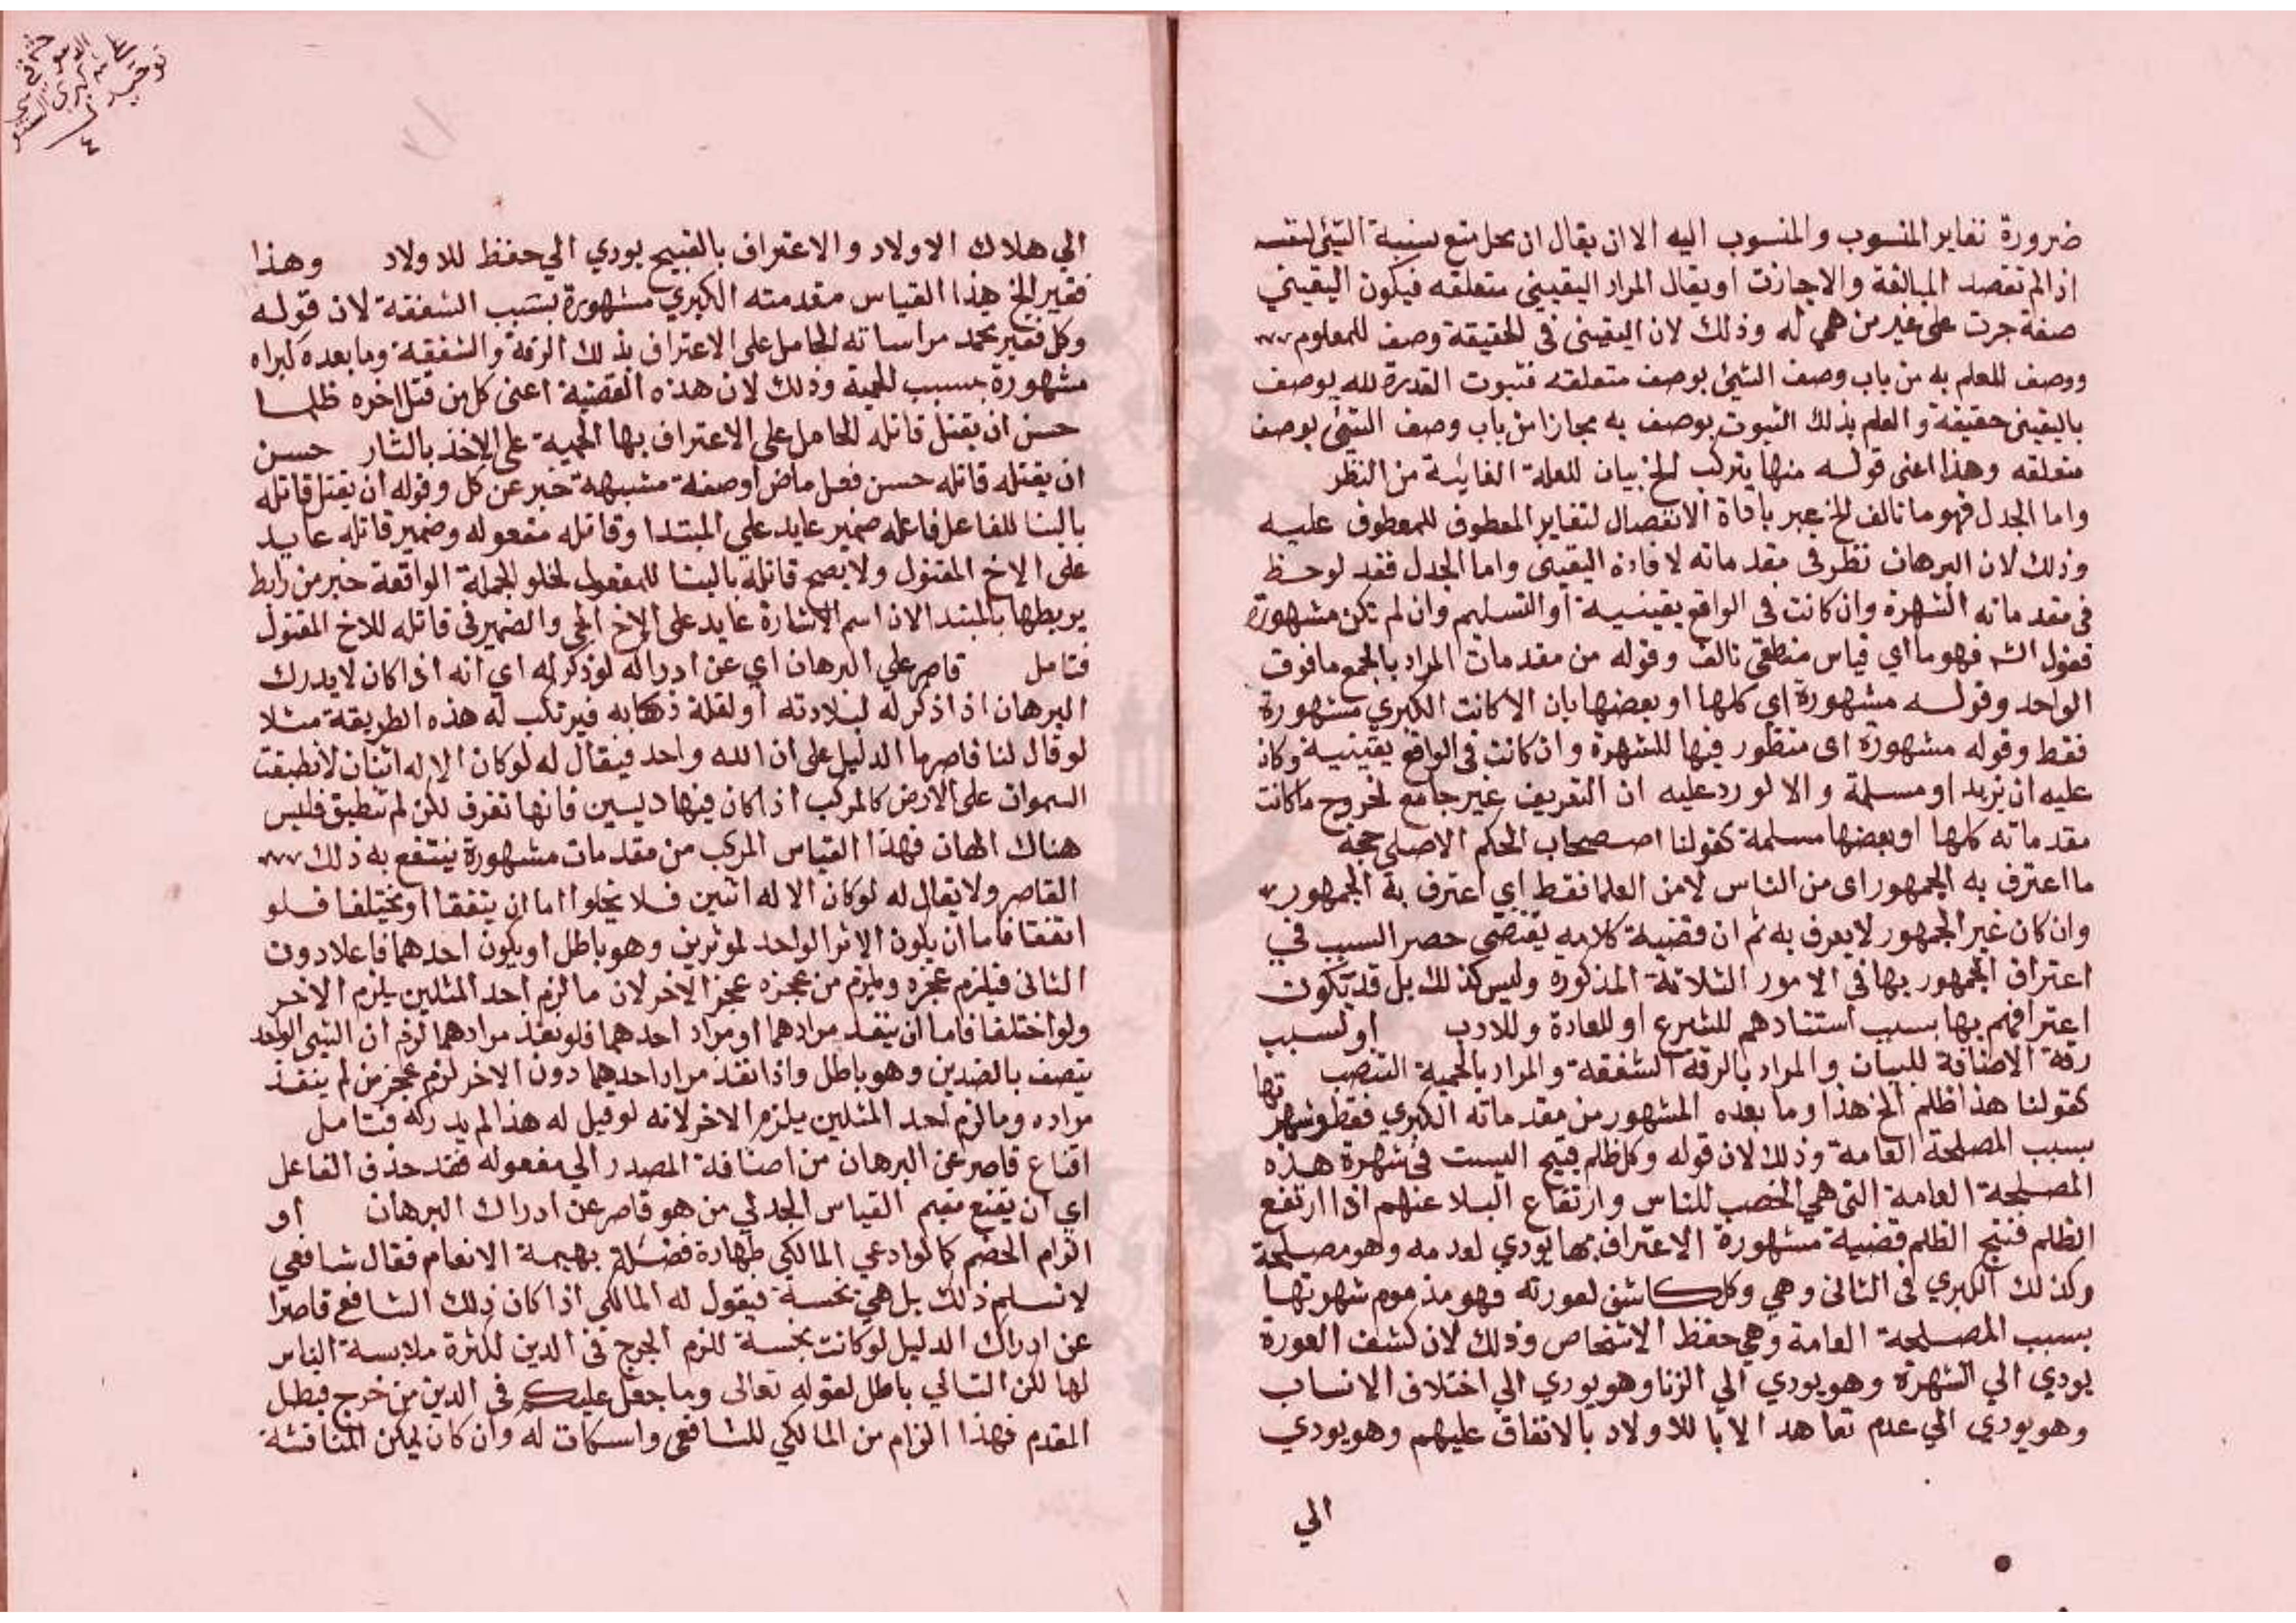 ضرورة تغاير المنسوب والمنسوب اليه الا ان يقال ان محل منع نسبة الشئ لنفسه
اذا لم تقصد المبالغة والا جازت او يقال المراد اليقيني متعلقه فيكون اليقيني
صفة جرت على غير من هي له وذلك لان اليقيني في الحقيقة وصف للمعلوم
ووصف العلم به من باب وصف الشئ بوصف متعلقه فثبوت القدرة لله يوصف
باليقيني حقيقة والعلم بذلك الثبوت يوصف به مجازا من باب وصف الشئ بوصف
متعلقه وهذا اعنى قوله منها يتركب الخ بيان للعلة الغائية من النظر
واما الجدل فهو ما تالف الخ عبر باداة الانفصال لتغاير المعطوف للمعطوف عليه
وذلك لان البرهان نظر في مقدماته لافادة اليقين واما الجدل فقد لوحظ
في مقدماته الشهرة وان كانت في الواقع يقينية او التسليم وان لم تكن مشهورة
فقول الش فهو ما اي قياس منطقي تالف وقوله من مقدمات المراد بالجمع ما فوق
الواحد وقوله مشهورة اي كلها او بعضها بان الا كانت الكبري مشهورة
فقط وقوله مشهورة اى منظور فيها للشهرة وان كانت في الواقع يقينية وكان
عليه ان يزيد او مسلمة والا لورد عليه ان التعريف غير جامع لخروج ما كانت
مقدماته كلها او بعضها مسلمة كقولنا استصحاب الحكم الاصلي حجة
ما اعترف به الجمهور اى من الناس لا من العلما فقط اي اعترف به الجمهور
وان كان غير الجمهور لا يعرف به ثم ان قضية كلامه يقتضى حصر السبب في
اعتراف الجمهور بها في الامور الثلاثة المذكورة وليس كذلك بل قد تكون
اعترافهم بها بسبب استنادهم للشرع او للعادة وللادب او لسبب
رقة الاضافة للبيان والمراد بالرقة الشفقة والمراد بالحمية التعصب
كقولنا هذا ظلم الخ هذا وما بعده المشهور من مقدماته الكبري فقط وشهرتها
بسبب المصلحة العامة وذلك لان قوله وكل ظلم قبيح السبب في شهرة هذه
المصلحة العامة التى هي الخصب للناس وارتفاع البلا عنهم اذا ارتفع
الظلم فقبح الظلم قضية مشهورة الاعتراف بها يودي لعدمه وهو مصلحة
وكذلك الكبري في الثانى وهي وكل كاشف لعورته فهو مذموم شهرتها
بسبب المصلحة العامة وهي حفظ الاشخاص وذلك لان كشف العورة
يودي الي الشهوة وهو يودي الي الزنا وهو يودي الي اختلاف الانساب
وهو يودي الي عدم تعاهد الابا للاولاد بالانفاق عليهم وهو يودي
الي
الي هلاك الاولاد والاعتراف بالقبيح يودي الي حفظ للاولاد وهذا
فقير الخ هذا القياس مقدمته الكبري مشهورة بسبب الشفقة لان قوله
وكل فقير يحمد مراساته الحامل على الاعتراف بذلك الرقة والشفقة وما بعده كبراه
مشهورة بسبب الحمية وذلك لان هذه القضية اعنى كل من قتل اخوه ظلما
حسن ان يقتل قاتله الحامل على الاعتراف بها الحمية على الاخذ بالثار حسن
ان يقتله قاتله حسن فعل ماض او صفة مشبهة خبر عن كل وقوله ان يقتل قاتله
بالبنا للفاعل فاعله ضمير عايد على المبتدا وقاتله مفعوله وضمير قاتله عايد
على الاخ المقتول ولا يصح قاتله بالبنا للمفعول لخلو الجملة الواقعة خبر من رابط
يربطها بالمبتدا لان اسم الاشارة عايد على الاخ الحي والضمير في قاتله للاخ المقتول
فتامل قاصر علي البرهان اي عن ادراكه لو ذكر له اي انه اذا كان لا يدرك
البرهان اذا ذكر له لبلادته او لقلة ذكابه فيرتكب له هذه الطريقة مثلا
لو قال لنا قاصر ما الدليل على ان الله واحد فيقال له لو كان الاله اثنان لانطبقت
السموات على الارض كالمركب اذا كان فيها رييسين فانها تغرق لكن لم تنطبق فليس
هناك الهان فهذا القياس المركب من مقدمات مشهورة ينتفع به ذلك
القاصر ولا يقال له لو كان الاله اثنين فلا يخلوا اما ان يتفقا او يختلفا فلو
اتفقا فاما ان يكون الاثر الواحد لموثرين وهو باطل او يكون احدهما فاعلا دون
الثانى فيلزم عجزه ويلزم من عجزه عجز الاخر لان ما لزم احد المثلين يلزم الاخر
ولو اختلفا فاما ان ينفذ مرادهما او مراد احدهما فلو نفذ مرادهما لزم ان الشي الواحد
يتصف بالضدين وهو باطل واذا نفذ مراد احدهما دون الاخر لزم عجز من لم ينفذ
مراده وما لزم احد المثلين يلزم الاخر لانه لو قيل له هذا لم يدركه فتامل
اقناع قاصر عن البرهان من اضافة المصدر الي مفعوله فقد حذف الفاعل
اي ان يقنع مقيم القياس الجدلي من هو قاصر عن ادراك البرهان او
الزام الخصم كما لو ادعي المالكي طهارة فضلة بهيمة الانعام فقال شافعي
لا نسلم ذلك بل هي نجسة فيقول له المالكي اذا كان ذلك الشافع قاصرا
عن ادراك الدليل لو كانت نجسة للزم الحرج في الدين لكثرة ملابسة الناس
لها لكن التالي باطل لقوله تعالى وما جعل عليكم في الدين من حرج فبطل
المقدم فهذا الزام من المالكي للشافعي واسكات له وان كان يمكن المناقشة